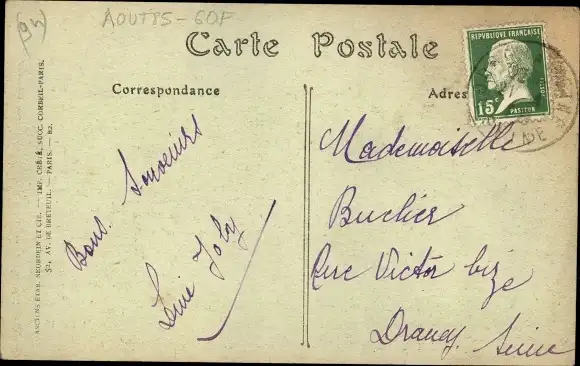 AOUT85-60F
95
Carte Postale
Correspondance
Adres
RÉPUBLIQUE FRANÇAISE
15c
POSTES
PASTEUR
DE
Bons Souvenirs
Line Joly
Mademoiselle
Buclier
Rue Victor
Drancy. Seine
ANCIENS ÉTAB. NEURDEIN ET CIE. — IMP. CRÉTÉ, SUCC. CORBEIL-PARIS.
52, AV. DE BRETEUIL. — PARIS. — 82.